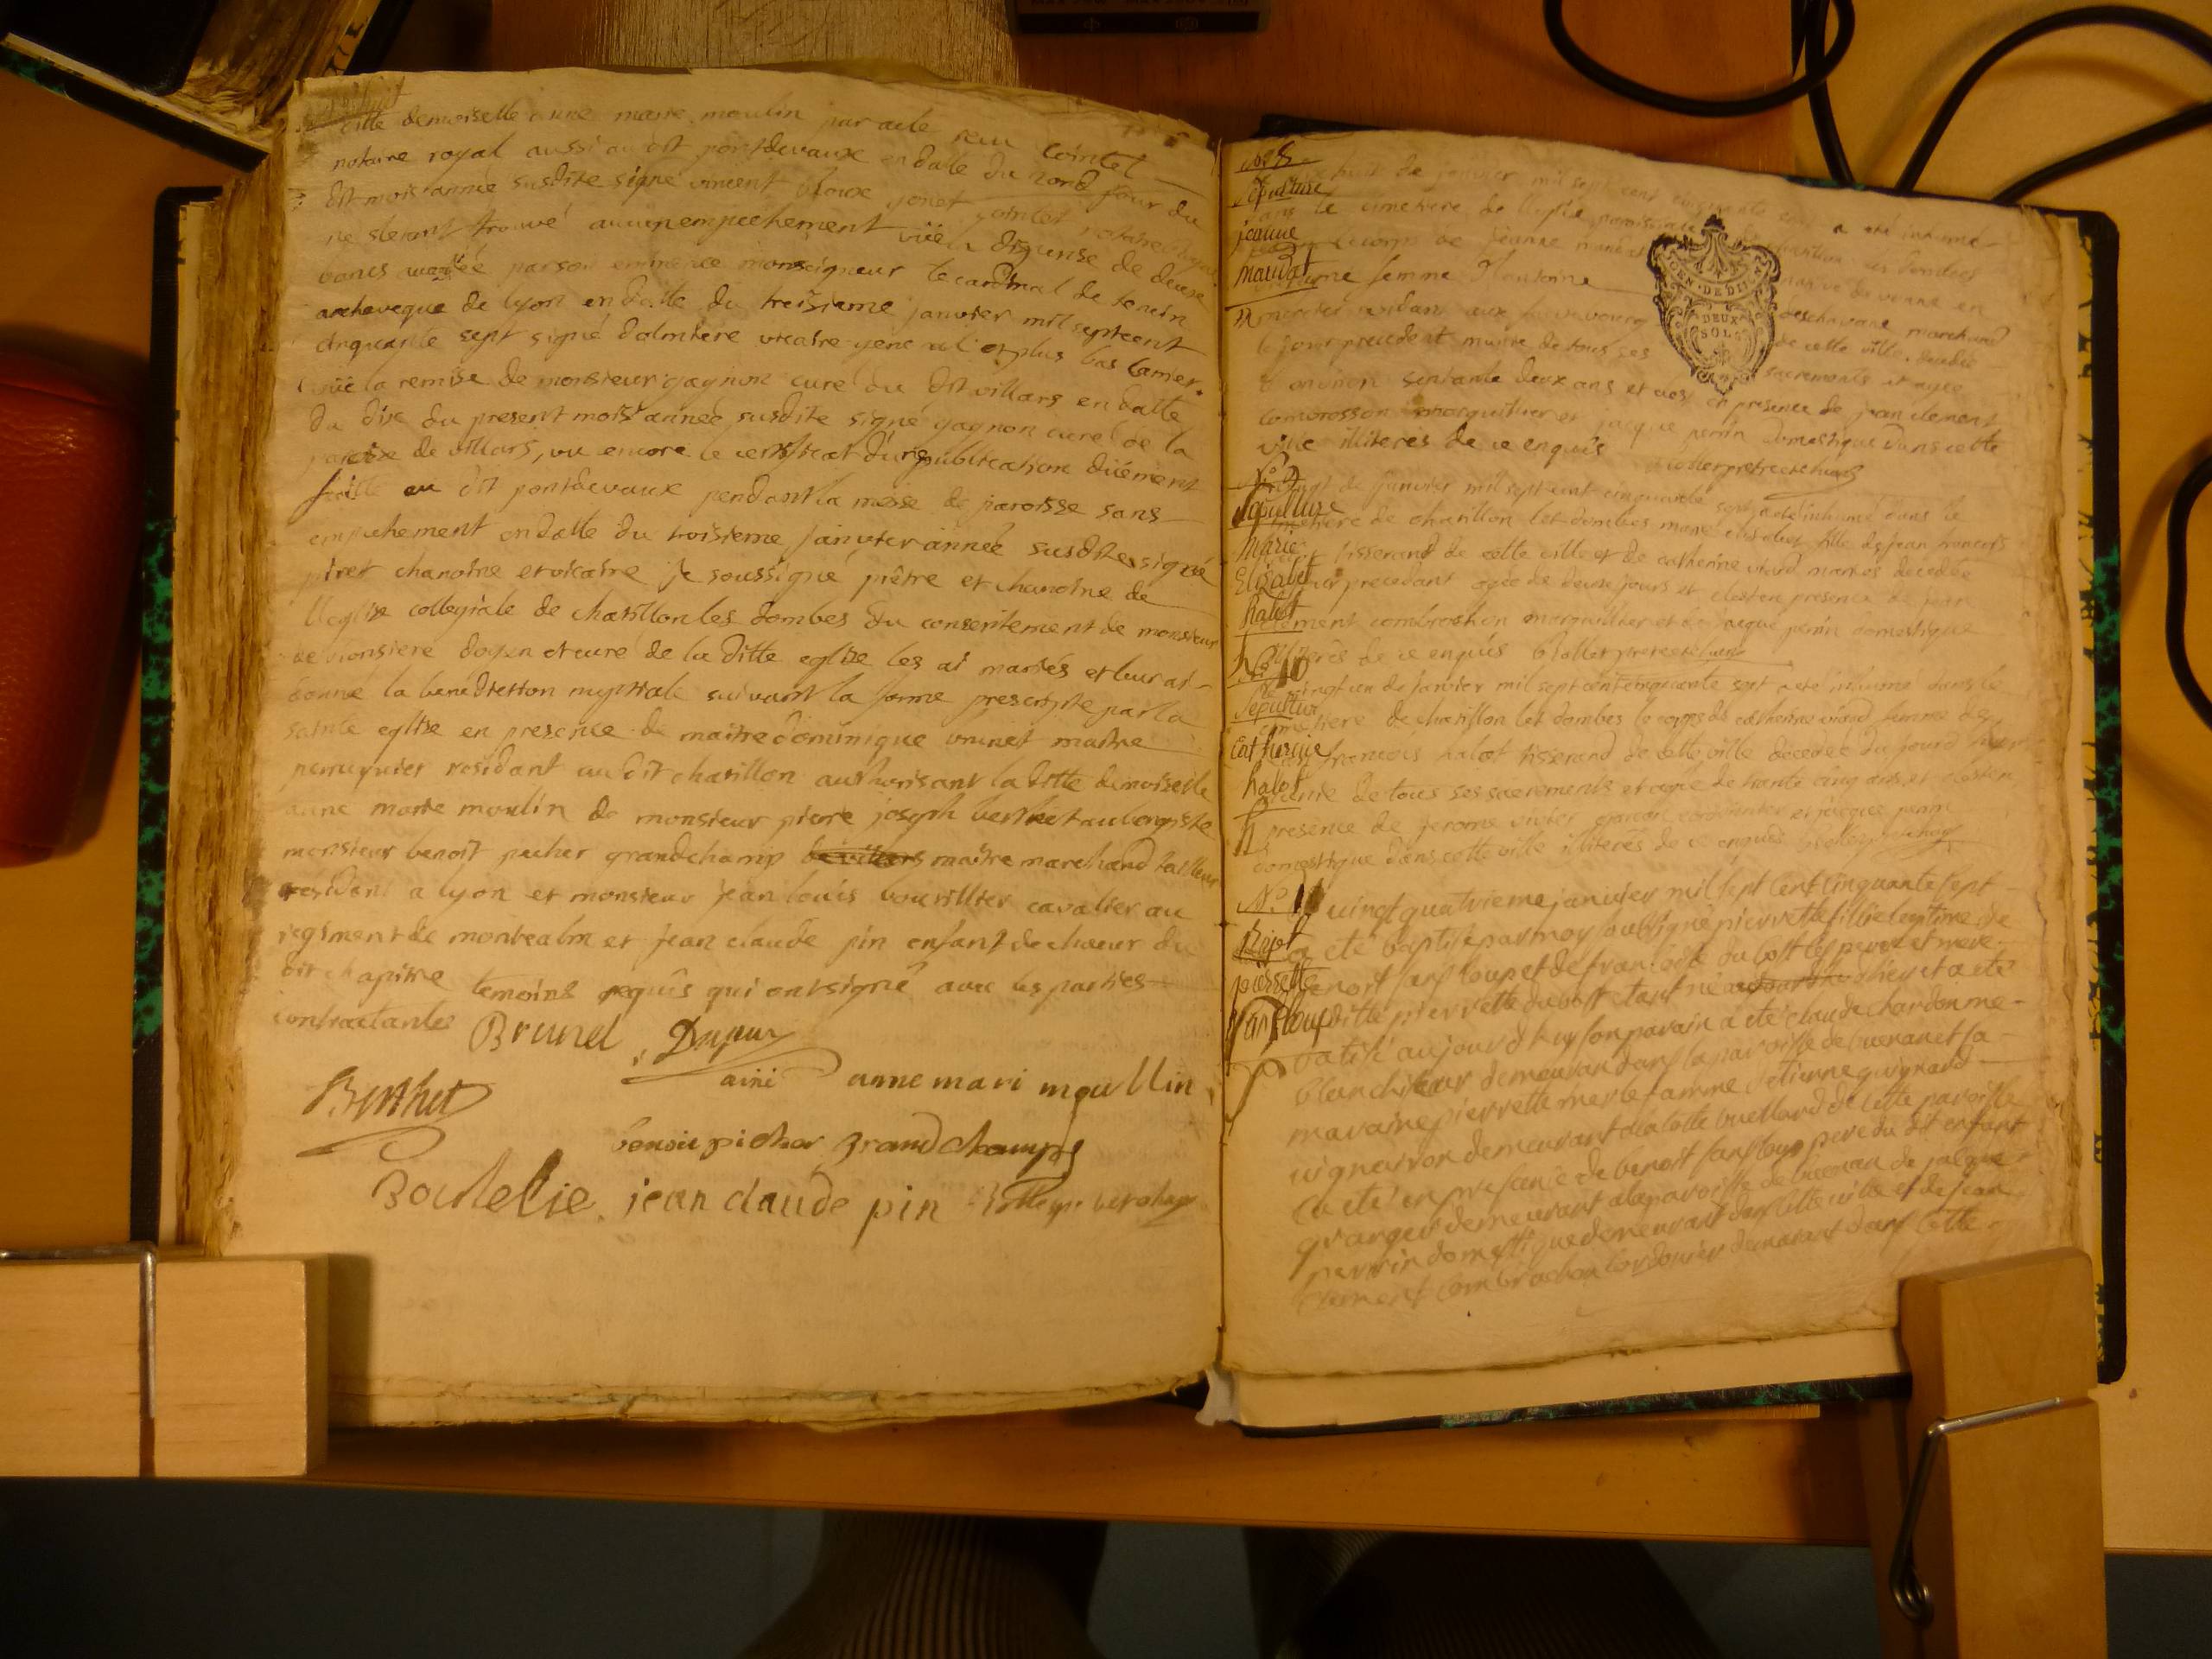 ditte demoiselle anne marie moulin par acte reçu Cointet
notaire royal aussi au dit pontdevaux en datte du nord jour du
dit mois année susdite signé vincent yonet Cointet notaire royal
ne s'etant trouvé aucun empechement vüe la dispense de deux
bancs par son eminence monseigneur le cardinal de tencin
archeveque de lyon en datte du treisieme janvier mil sept cent
cinquante sept signé dalmiere vicaire general et plus bas Camer.
vüe la remise de monsieur gagnon curé du dit villars en datte
du dix du present mois année susdite signé gagnon curé de la
paroisse de villars, vu encore le certificat d'une publication düement
faitte au dit pontdevaux pendant la messe de paroisse sans
empechement en datte du troisieme janvier année susdite signé
piret chanoine et vicaire je soussigné prêtre et chanoine de
l'eglise collegiale de chatillon les dombes du consentement de monsieur
doyen et curé de la ditte eglise les ai mariés et leur ai
donné la benediction nuptiale suivant la forme prescripte par la
sainte eglise en presence de maitre dominique brunet maitre
perruquier residant au dit chatillon authorisant la ditte demoiselle
anne marie moulin de monsieur pierre joseph berthet aubergiste
monsieur benoit picher grandchamp maitre marchand tailleur
residant a lyon et monsieur jean louis bouvillier cavalier au
regiment de montcalm et jean claude pin enfant de chœur du
dit chapitre temoins requis qui ont signé avec les parties
contractantes Brunel Dupuy
ainé anne mari moullin
Berthet
benoit picher Grandchamps
Boutelie jean claude pin
N° 8
huit de janvier mil sept cent cinquante sept a été inhumé
Sepulture
dans le cimetiere de l'eglise paroissiale de chatillon les dombes
jeanne
le corps de jeanne
mauvat
femme d'antoine deschavane marchand
mercier residant aux de cette ville, decedée
le jour precedent munie de tous ses sacrements et agée
d'environ septante deux ans et c'est en presence de jean clement
combrosson marguillier et jacque perrin domestique dans cette
ville illiterés de ce enquis
N° 9
vingt de janvier mil sept cent cinquante sept a été inhumé dans le
Sepulture
cimetiere de chatillon les dombes marie elisabet fille de jean francois
Marie
tisserand de cette ville et de catherine viard mariés decedée
Elizabet
jour precedant agée de deux jours et c'est en presence de jean
Ralot
clement combrochon marguillier et de jacque perin domestique
illiterés de ce enquis
N° 10
vingt un de janvier mil sept cent cinquante sept a été inhumé dans le
Sepulture
cimetiere de chatillon les dombes le corps de catherine viard femme de
Catherine
francois ralot tisserand de cette ville decedée du jourd'hier
Ralot
munie de tous ses sacrements et agée de trente cinq ans et c'est en
presence de jerome vivier garcon cordonnier et jacque perin
domestique dans cette ville illiterés de ce enquis
N° 11
vingt quatrieme janvier mil sept cent cinquante sept
a eté baptisé par moy soussigné pierrette fillie legitime de
pierrette
benoit sansloup et de francoise dubost les pere et mere
Sansloup
ditte pierrette dubost etant né hier et a eté
batisé aujourdhuy son parain a eté claude chardon me-
blanchisseur demeurant dans la paroisse de buenan et sa
maraine pierrette merle famme d'etienne guignard
vigneron demeurant a la cotte buellard de cette paroisse
ca eté en presance de benoit sansloup pere du dit enfant
granger demeurant a la paroisse de buenan de jacque
perrin domestique demeurant dans cette ville et de jean
clement combrochon cordonier demeurant dans cette
GEN. DE DIJ
DEUX
SOLS